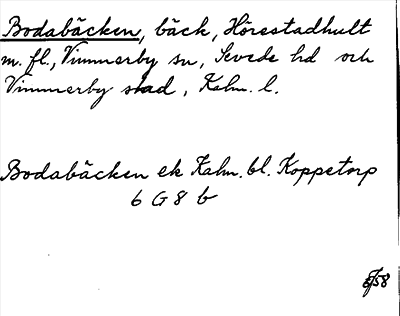 Bodabäcken, bäck, Hörestadhult
m. fl., Vimmerby sn, Sevede hd och
Vimmerby stad, Kalm. l.
Bodabäcken ek Kalm. bl. Koppetorp
6 G 8 b